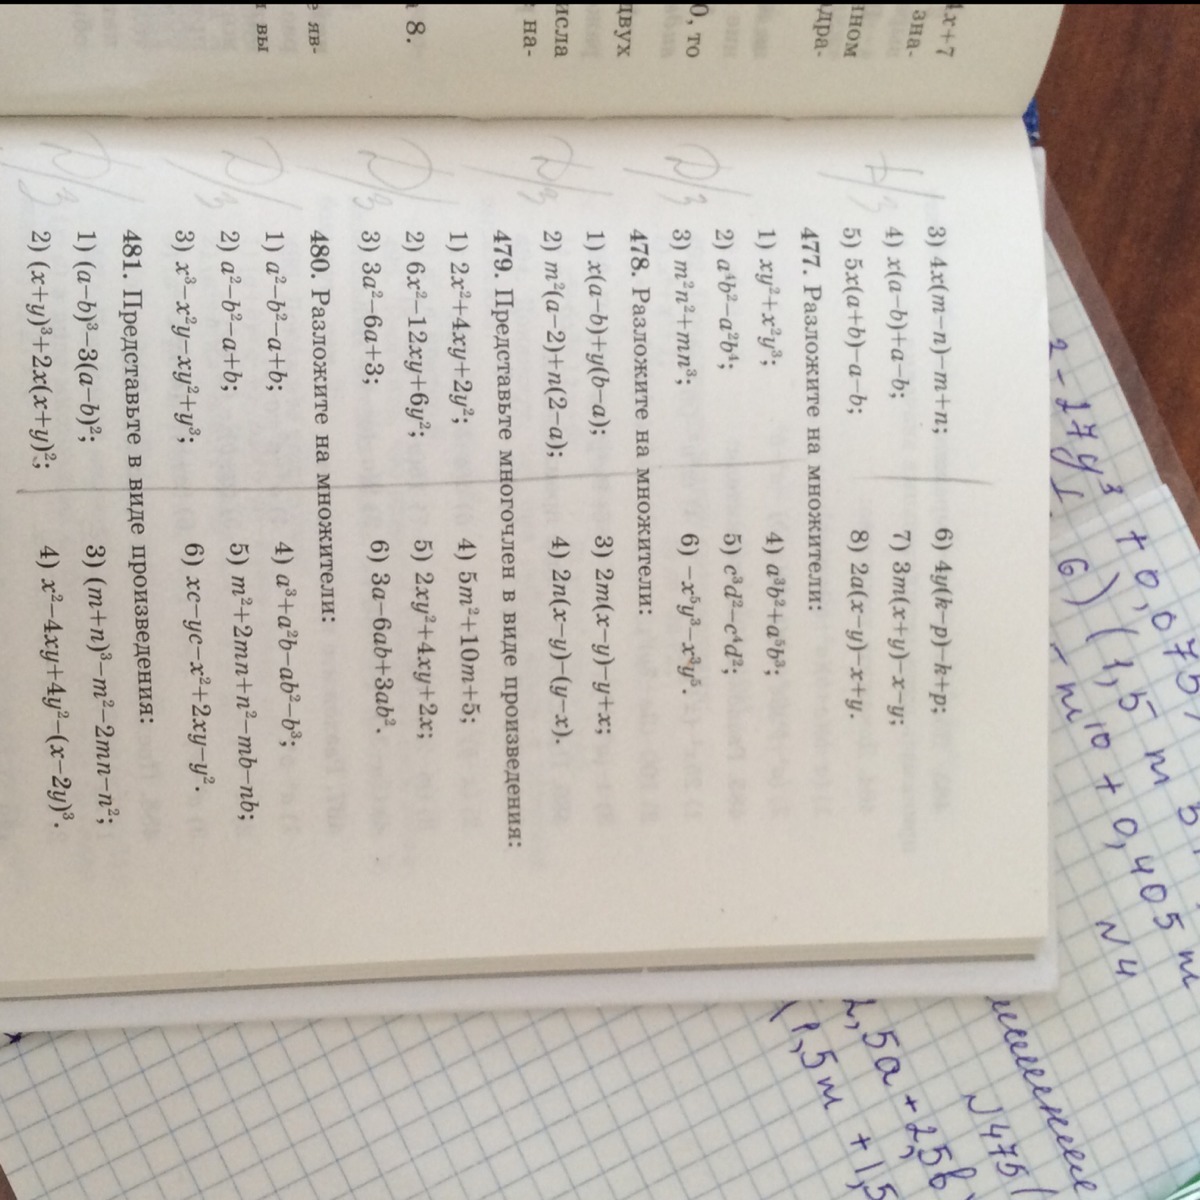 4x+7
зна-
ном
дра-
0, то
двух
исла
на-
8.
яв-
вы
3) 4x(m−n)−m+n;
6) 4y(k−p)−k+p;
4) x(a−b)+a−b;
7) 3m(x+y)−x−y;
5) 5x(a+b)−a−b;
8) 2a(x−y)−x+y.
477. Разложите на множители:
1) xy²+x²y³;
4) a³b²+a⁵b³;
2) a⁴b²−a²b⁴;
5) c³d²−c⁴d²;
3) m²n²+mn³;
6) −x⁵y³−x³y⁵.
478. Разложите на множители:
1) x(a−b)+y(b−a);
3) 2m(x−y)−y+x;
2) m²(a−2)+n(2−a);
4) 2n(x−y)−(y−x).
479. Представьте многочлен в виде произведения:
1) 2x²+4xy+2y²;
4) 5m²+10m+5;
2) 6x²−12xy+6y²;
5) 2xy²+4xy+2x;
3) 3a²−6a+3;
6) 3a−6ab+3ab².
480. Разложите на множители:
1) a²−b²−a+b;
4) a³+a²b−ab²−b³;
2) a²−b²−a+b;
5) m²+2mn+n²−mb−nb;
3) x³−x²y−xy²+y³;
6) xc−yc−x²+2xy−y².
481. Представьте в виде произведения:
1) (a−b)³−3(a−b)²;
3) (m+n)³−m²−2mn−n²;
2) (x+y)³+2x(x+y)²;
4) x²−4xy+4y²−(x−2y)³.
Д/з
Д/з
Д/з
Д/з
Д/
Д/з
2 - 27y³ + 0,075
6) (1,5 m
- m¹⁰ + 0,405 m
N 4
N 475 (
2,5a + 2,5b
(1,5m + 1,5